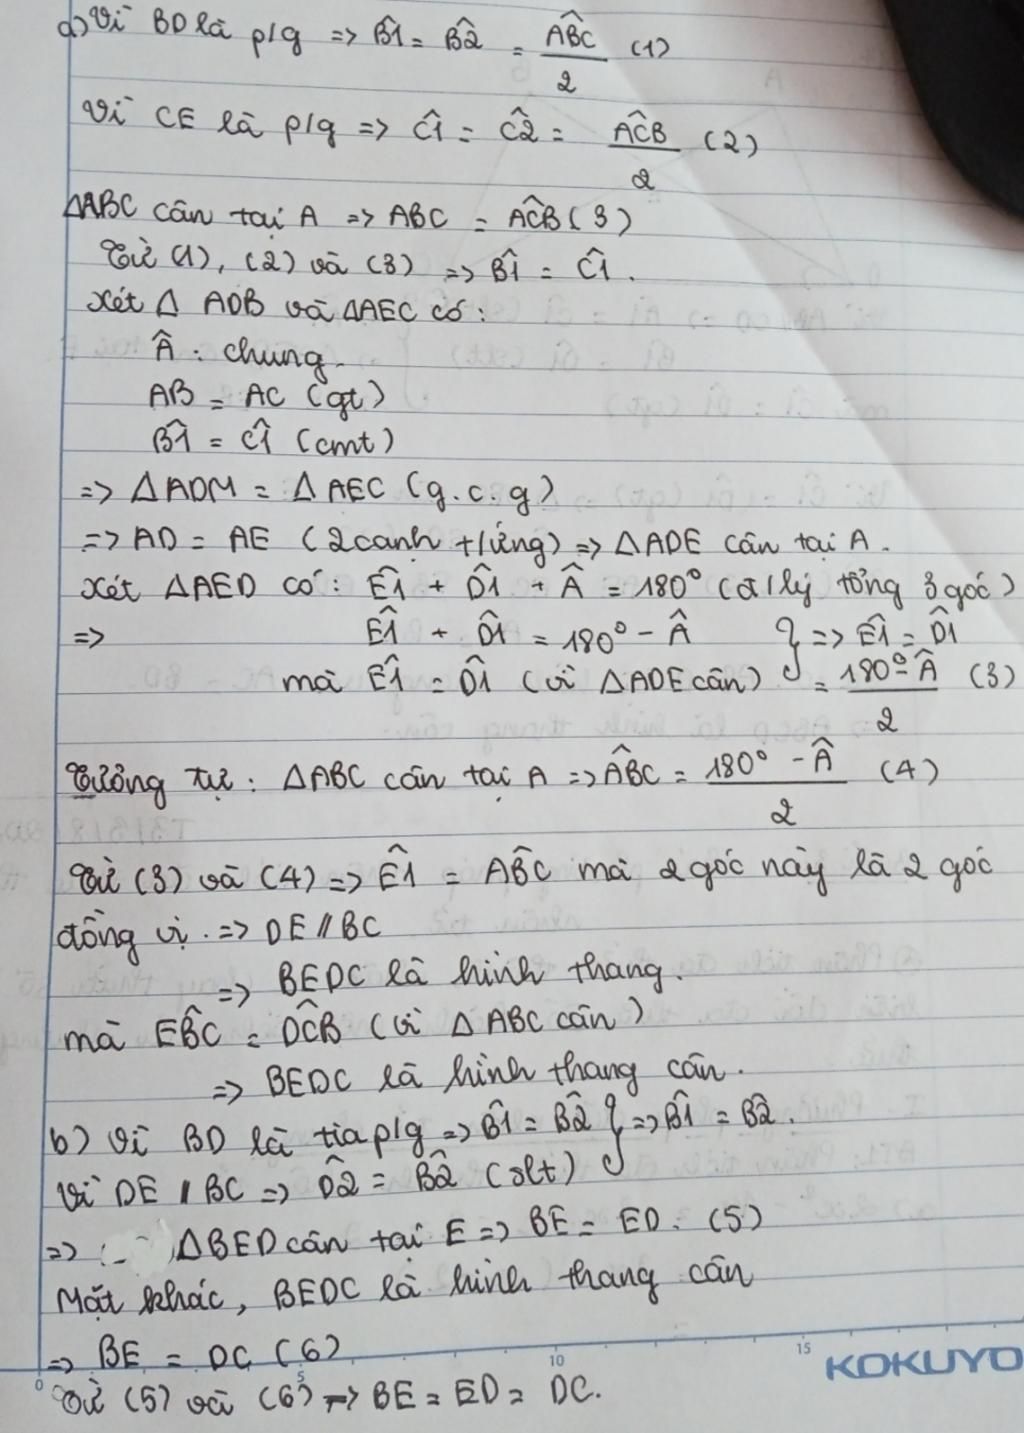 a) Vì BD là p/g => B̂1 = B̂2 = AB̂C/2 (1)
Vì CE là p/g => Ĉ1 = Ĉ2 = AĈB/2 (2)
ΔABC cân tại A => ABC = AĈB (3)
Từ (1), (2) và (3) => B̂1 = Ĉ1.
Xét Δ ADB và ΔAEC có:
Â : chung.
AB = AC (gt)
B̂1 = Ĉ1 (cmt)
=> ΔADM = ΔAEC (g.c.g)
=> AD = AE (2 cạnh t/ứng) => ΔADE cân tại A.
Xét ΔAED có: Ê1 + D̂1 + Â = 180° (đ/lý tổng 3 góc)
=> Ê1 + D̂1 = 180° - Â } => Ê1 = D̂1
mà Ê1 = D̂1 (vì ΔADE cân) = 180° - Â/2 (3)
Tương tự: ΔABC cân tại A => AB̂C = 180° - Â/2 (4)
Từ (3) và (4) => Ê1 = AB̂C mà 2 góc này là 2 góc
đồng vị. => DE // BC
=> BEDC là hình thang.
mà EB̂C = DĈB (vì Δ ABC cân)
=> BEDC là hình thang cân.
b) Vì BD là tia p/g => B̂1 = B̂2 } => B̂1 = B̂2.
Vì DE // BC => D̂2 = B̂2 (slt)
=> ΔBED cân tại E => BE = ED. (5)
Mặt khác, BEDC là hình thang cân
=> BE = DC (6)
0 5 10 15 KOKUYO
Từ (5) và (6) => BE = ED = DC.